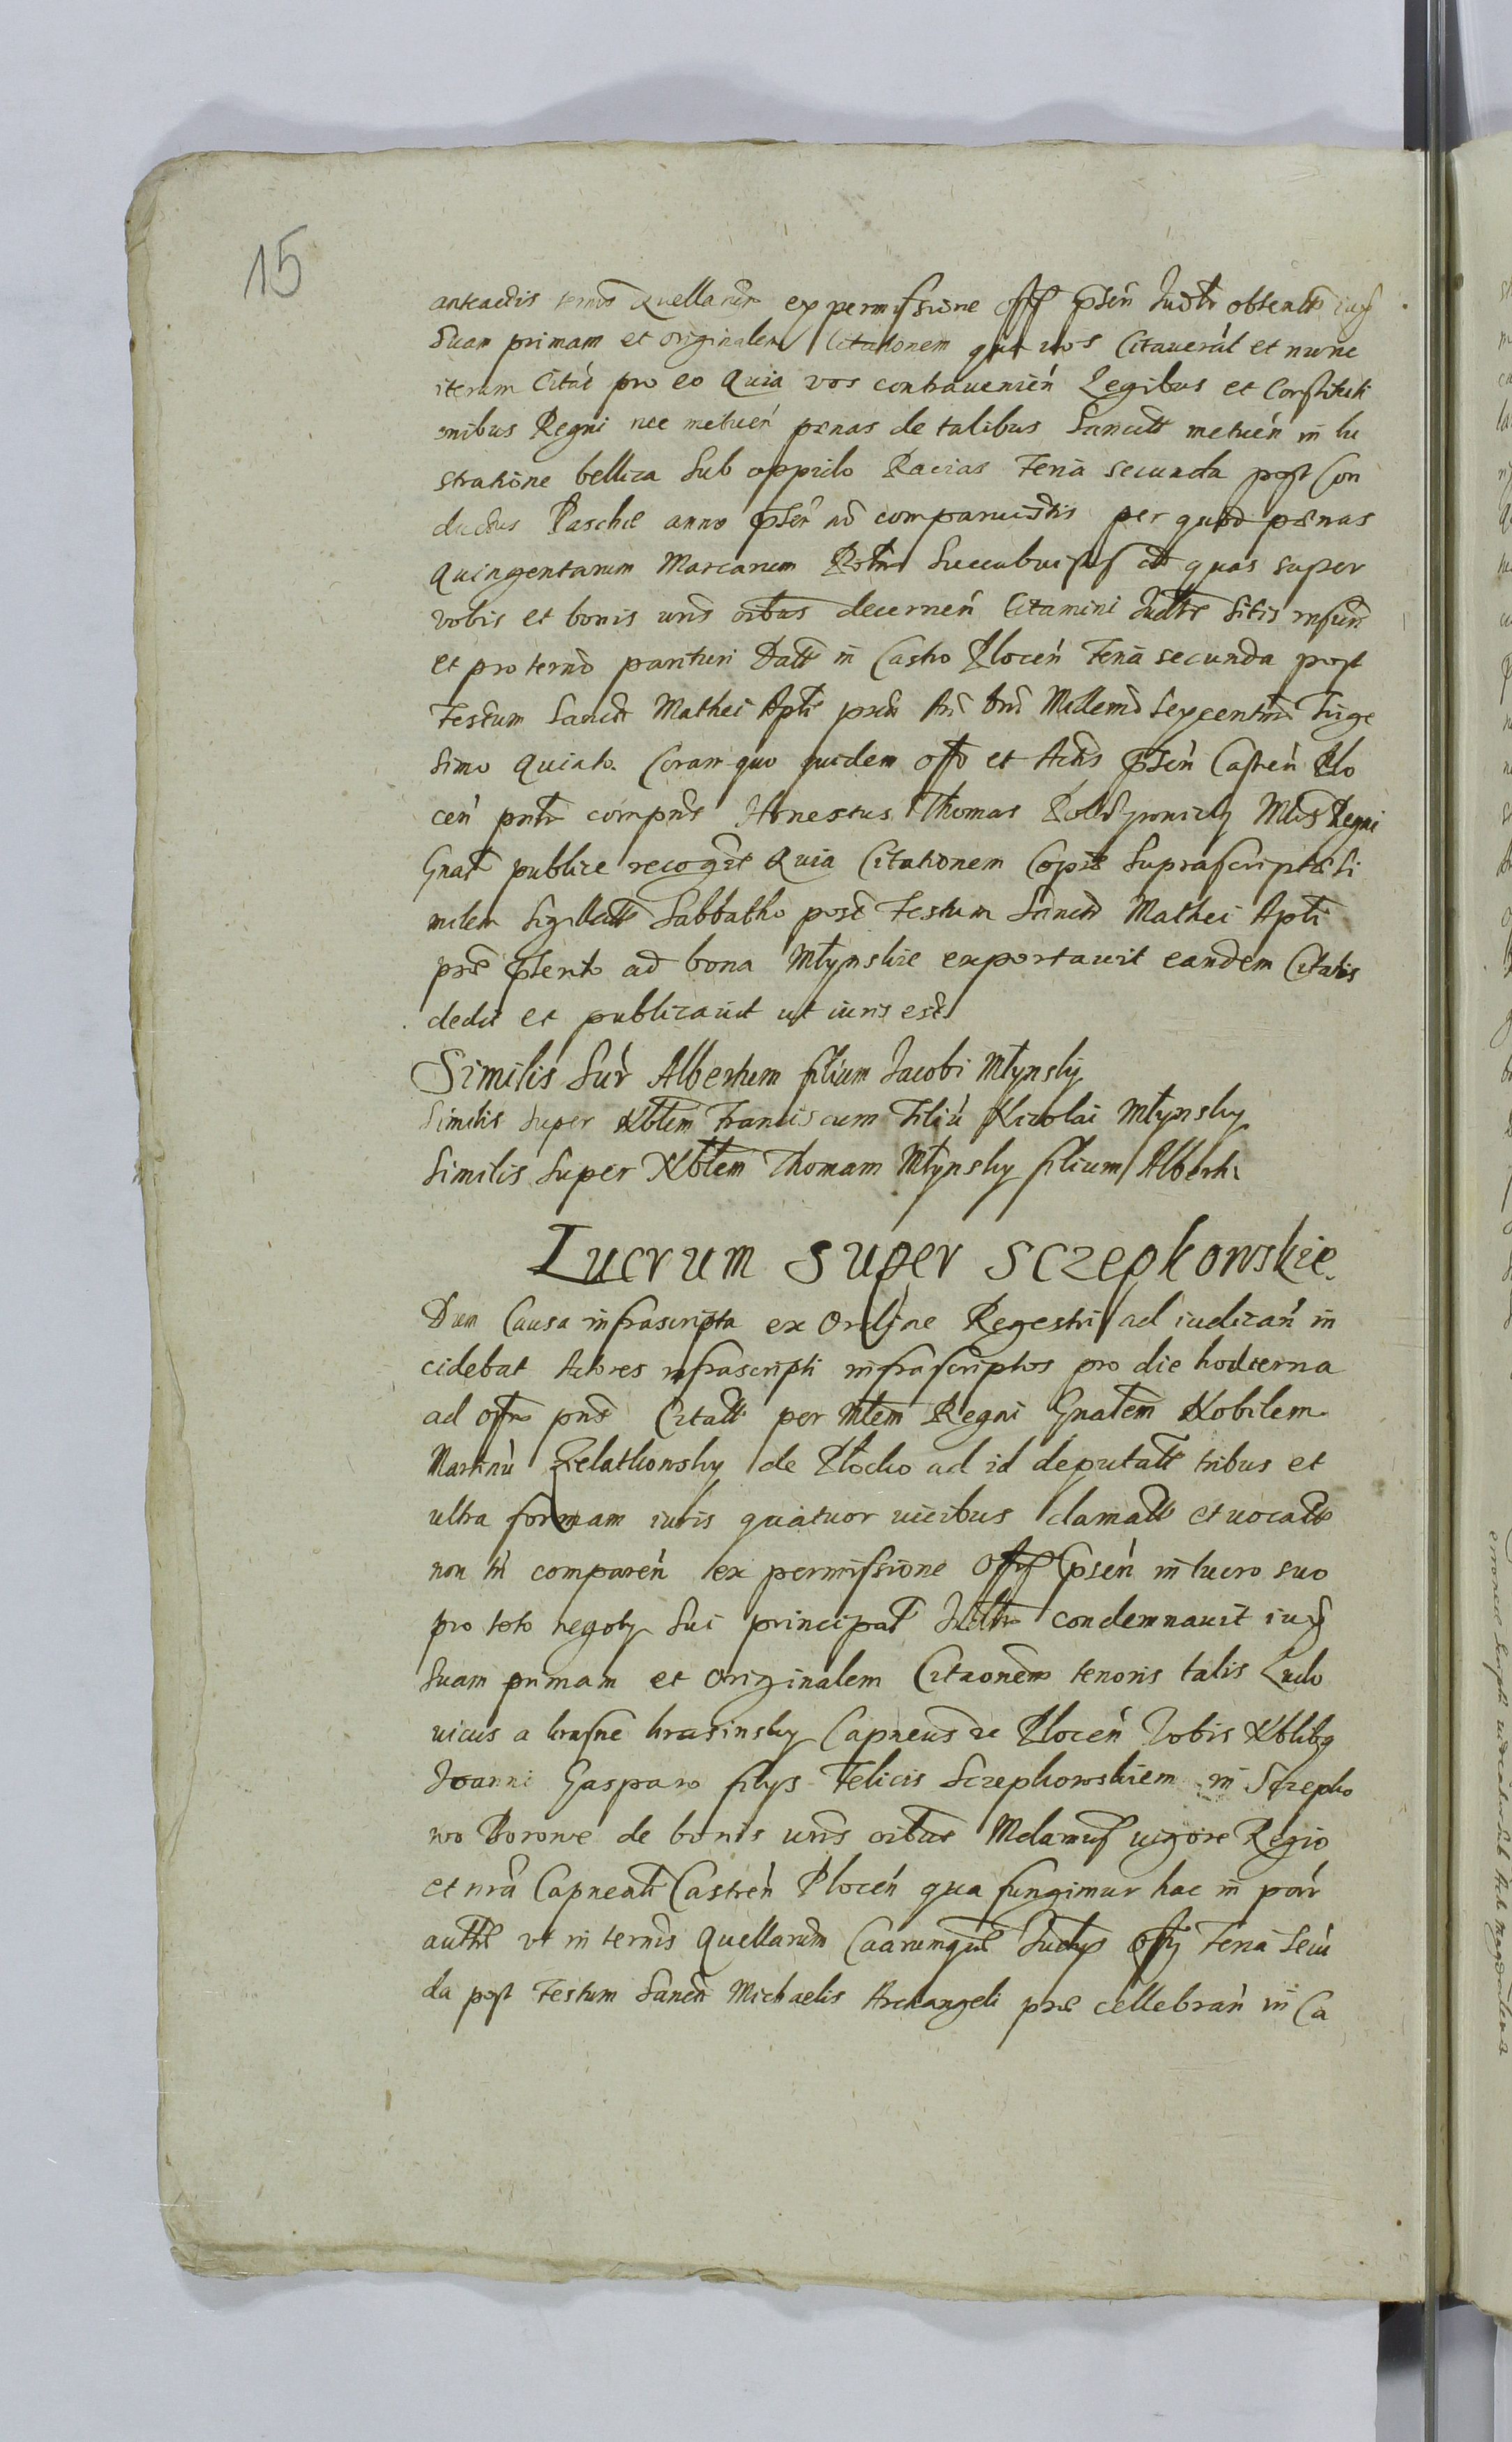 15
anteactis termis Quellarum ex permissione Offy psen Judtr obtentis iux
Suam primam et originalem Citationem qua vos Citauerat et nunc
iterum Citat pro eo Quia vos contrauenien Legibus et Constituti
onibus Regni nec metuen pænas de talibus Sancitt metuen in lu
stratione bellica Sub oppido Racias Feria secunda post Con
ductus Paschæ anno psen no comparuistis per quod pænas
Quingentarum Marcarum Succubuistis quas super
vobis et bonis vris oibus decernen Citamini Judtr Sitis
et pro termo parituri Datt in Castro Plocen Feria secunda post
Festum Sancti Mathei Apli prox An Dni Millemo Sexcentmo Trige
simo Quinto. Coram quo quidem offo et Actis psen Castren Plo
cen pntr compns Honestus Thomas Mlis Regni
Gnal publice recogt Quia Citationem Copiæ Suprascriptæ Si
milem Sigillatt Sabbatho post Festum Sancti Mathei Apli
pre pterito ad bona Młynskie exportauit eandem Citatis
dedit et publicauit ut iuris est
Similis Sur Albertum filium Jacobi Młynsky
Similis Super Nblem Franciscum Filiu Nicolai Młynsky
Similis Super Nblem Thomam Młynsky filium Alberti
Lucrum super Sczepkowskie.
Dum Causa infrascripta ex Ordine Regestri ad iudican in
cidebat Actores infrascripti infrascriptos pro die hodierna
ad offm pns Citatt per Mlem Regni Gnalem Nobilem
Martinu Zelathowsky de Plocko ad id deputatt tribus et
ultra formam iuris quatuor vicibus clamatt et uocatt
non tn comparen ex permissione Offy psen in lucro suo
pro toto negoty sui principal Judtr condemnauit iux
Suam primam et Originalem Citaonem tenoris talis Ludo
uicus a krasne krasinsky Capneus Plocen Vobis Nblibg
Joanni Gasparo filys Felicis Sczepkowskiem in Sczepko
wo Borowe de bonis vris oibus Mdamus vigore Regio
et nra Capneali Castren Plocen qua fungimur hac in par
authe vt in termis Quellarum Caarumque Judys Offy Feria Secu
da post Festum Sancti Michaelis Archangeli pre cellebran in Ca